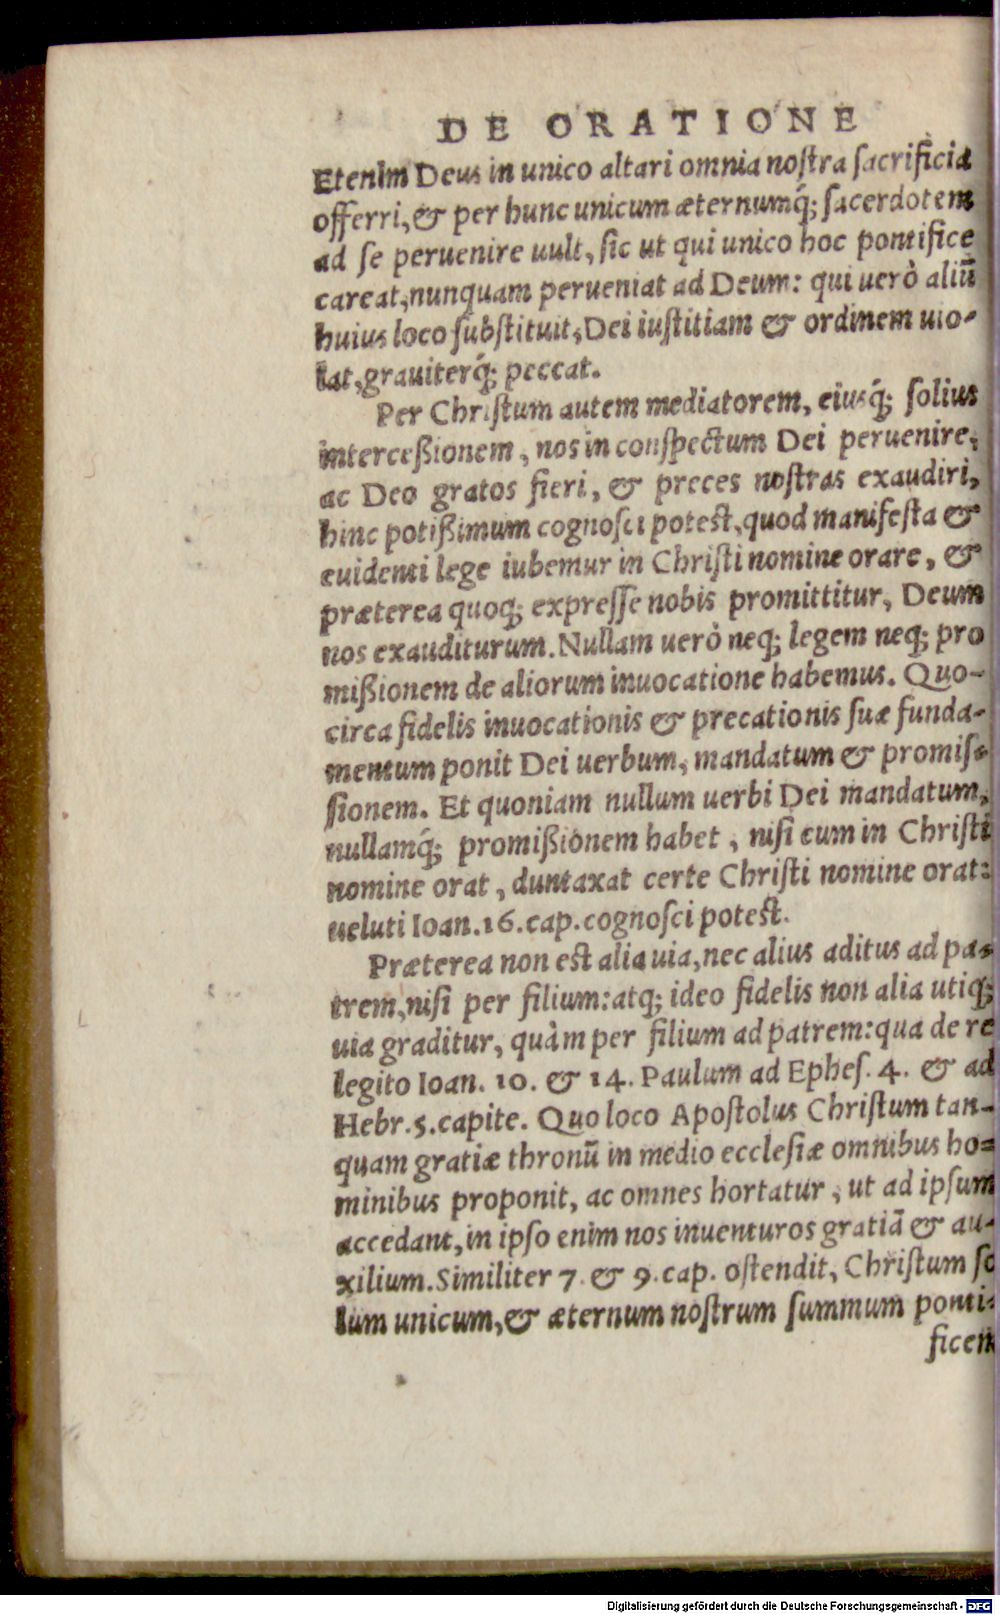 DE ORATIONE
Etenim Deus in unico altari omnia noſtra ſacrificia
offerri, & per hunc unicum æternumq́; ſacerdotem
ad ſe peruenire uult, ſic ut qui unico hoc pontifice
careat, nunquam perueniat ad Deum: qui uerò aliũ
huius loco ſubſtituit, Dei iuſtitiam & ordinem uio-
lat, grauiterq́; peccat.
Per Chriſtum autem mediatorem, eiusq́; ſolius
interceßionem, nos in conſpectum Dei peruenire,
ac Deo gratos fieri, & preces noſtras exaudiri,
hinc potißimum cognoſci poteſt, quod manifeſta &
euidenti lege iubemur in Chriſti nomine orare, &
præterea quoq; expreſſe nobis promittitur, Deum
nos exauditurum. Nullam uerò neq; legem neq; pro
mißionem de aliorum inuocatione habemus. Quo-
circa fidelis inuocationis & precationis ſuæ funda-
mentum ponit Dei uerbum, mandatum & promiſ-
ſionem. Et quoniam nullum uerbi Dei mandatum,
nullamq́; promißionem habet, niſi cum in Chriſti
nomine orat, duntaxat certe Chriſti nomine orat:
ueluti Ioan. 16. cap. cognoſci poteſt.
Præterea non eſt alia uia, nec alius aditus ad pa-
trem, niſi per filium: atq; ideo fidelis non alia utiq;
uia graditur, quàm per filium ad patrem: qua de re
legito Ioan. 10. & 14. Paulum ad Epheſ. 4. & ad
Hebr. 5. capite. Quo loco Apoſtolus Chriſtum tan-
quam gratiæ thronũ in medio eccleſiæ omnibus ho-
minibus proponit, ac omnes hortatur, ut ad ipſum
accedant, in ipſo enim nos inuenturos gratiã & au-
xilium. Similiter 7. & 9. cap. oſtendit, Chriſtum ſo
lum unicum, & æternum noſtrum ſummum ponti-
ficem
Digitalisierung gefördert durch die Deutsche Forschungsgemeinschaft - DFG